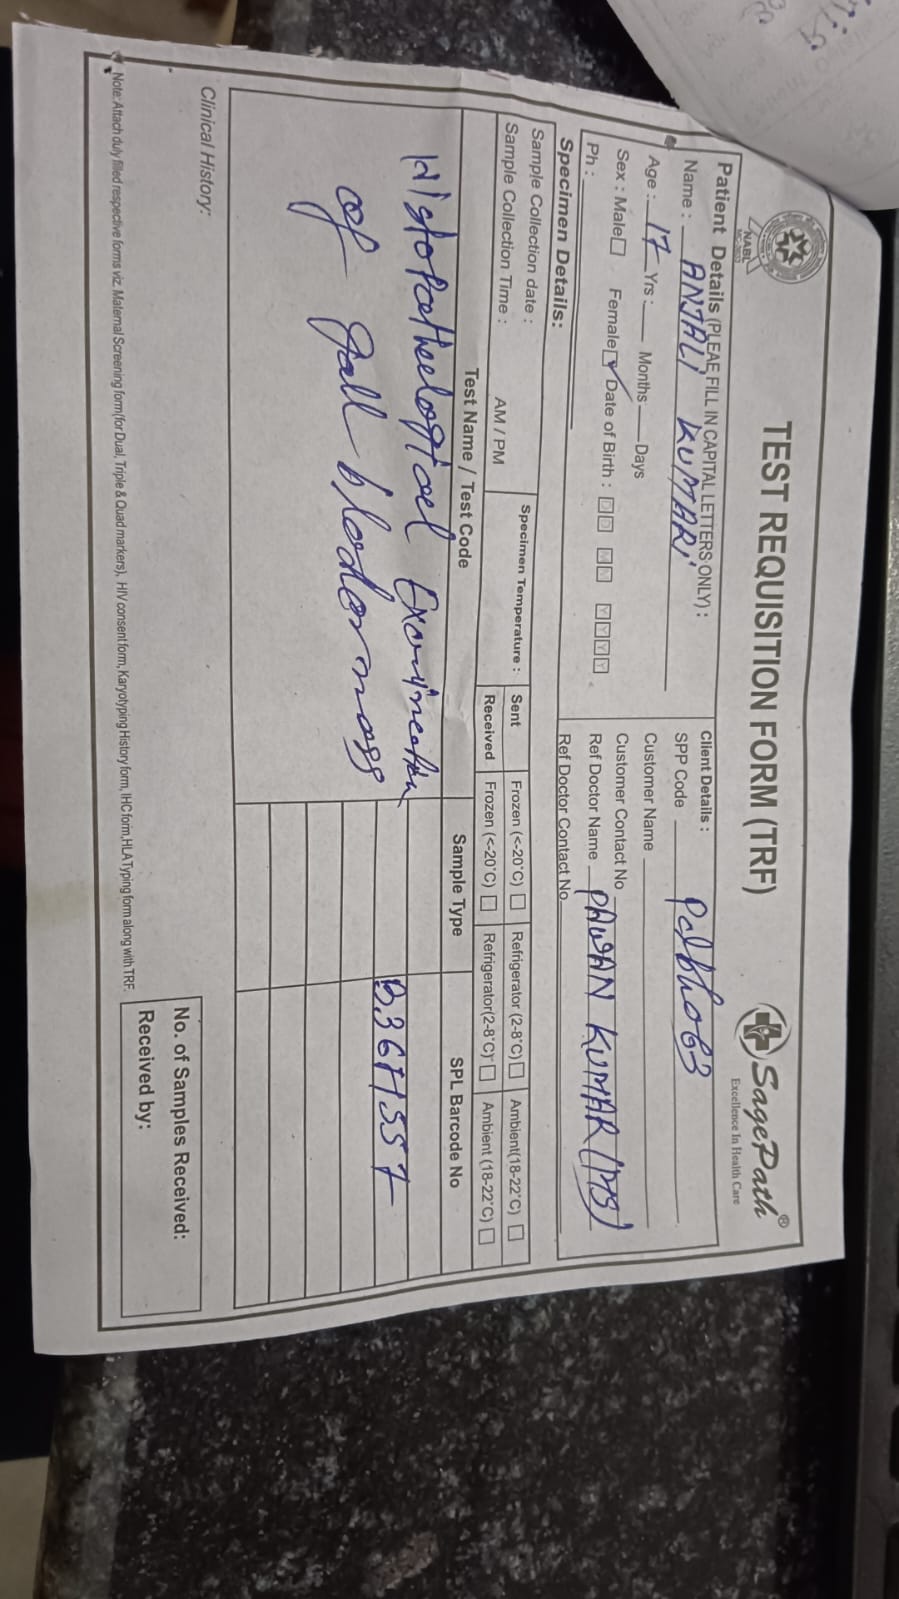 TEST REQUISITION FORM (TRF)
NABL
SagePath®
Excellence In Health Care
Patient Details (PLEAE FILL IN CAPITAL LETTERS ONLY) :
Name : ANJALI KUMARI
Age : 17 Yrs : Months Days
Sex : Male Female ✓ Date of Birth : D D M M Y Y Y Y
Ph :
Client Details :
SPP Code
Customer Name
Customer Contact No
Ref Doctor Name PAWAN KUMAR (PTS)
Ref Doctor Contact No
Specimen Details:
Sample Collection date :
Sample Collection Time : AM / PM
Specimen Temperature :
Sent Frozen (<-20°C) Refrigerator (2-8°C) Ambient(18-22°C)
Received Frozen (<-20°C) Refrigerator(2-8°C) Ambient (18-22°C)
Test Name / Test Code Sample Type SPL Barcode No
Histopathological Examination
of gall bladder mass
Clinical History:
No. of Samples Received:
Received by:
Note: Attach duly filled respective forms viz. Maternal Screening form(for Dual, Triple & Quad markers), HIV consent form, Karyotyping History form, IHC form,HLA Typing form along with TRF.